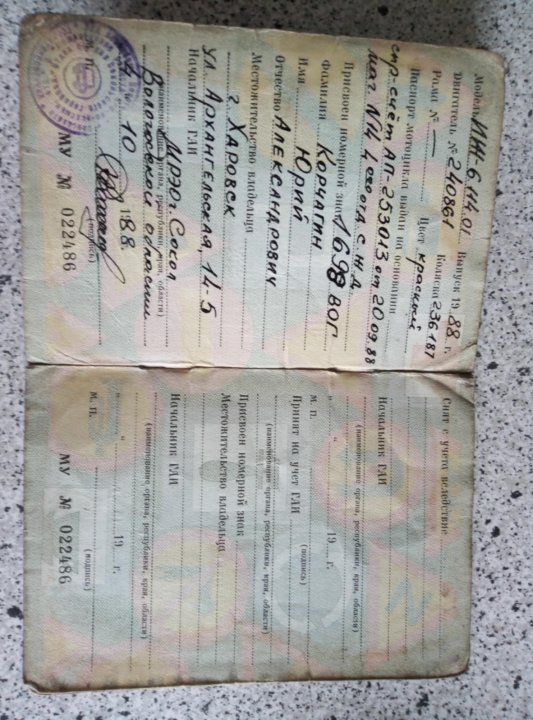 Модель ИЖ-6.114.01 Выпуск 1988 г.
Двигатель № 240861
Рама № — Цвет красный Коляска 236187
Паспорт мотоцикла выдан на основании
спр-счёт АП-253013 от 20.09.88
маг N14
Присвоен номерной знак 1698 ВОГ
Фамилия Корчагин
Имя Юрий
Отчество Александрович
Местожительство владельца
г. Харовск
ул. Архангельская, 14-5
Начальник ГАИ
МРЭО г. Сокол
(наименование органа, республики, края, области)
Вологодской области
10 1988
М. П. (подпись)
МУ № 022486
Снят с учета вследствие
Начальник ГАИ
(наименование органа, республики, края, области)
" " 19 г.
М. П. (подпись)
Принят на учет ГАИ
(наименование органа, республики, края, области)
Присвоен номерной знак
Местожительство владельца
Начальник ГАИ
(наименование органа, республики, края, области)
" " 19 г.
М. П. (подпись)
МУ № 022486